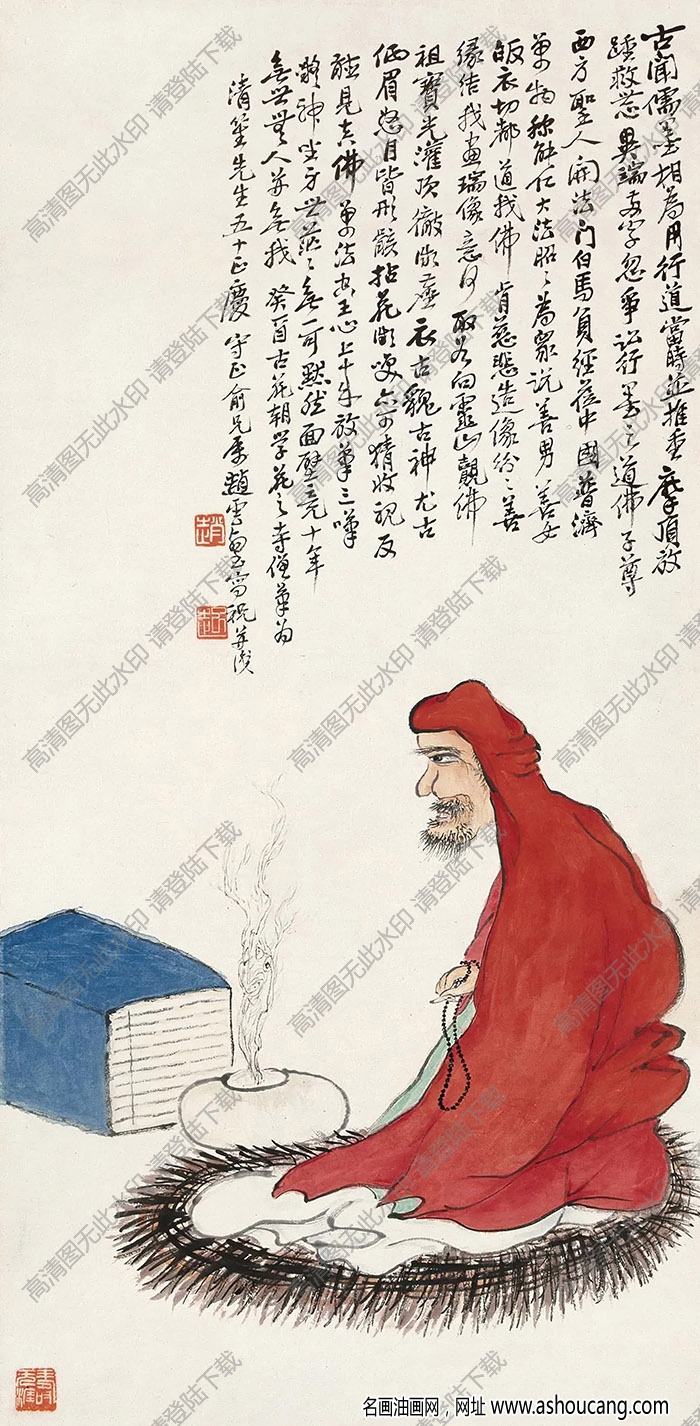 古闻儒墨相为用行道當時並推重摩頂放
踵救世異端two字忽爭訟行墨之道佛子尊
西方聖人開法門白馬負經莅中國普濟
萬物稱能仁大法昭〻為眾說善男善女
皈衣切都道我佛肯慈悲造像紛〻善
緣結我畫瑞像意何取為向靈山觀佛
祖寶光灌頂徹微塵衣古貌古神尤古
低眉怒目皆形骸拈花微笑亦可猜收視反
聽見真佛萬法出王心上來放筆三嘆
精神坐方世茫〻無一可默然面壁三九十年
無世無人并無我癸酉古花朝學花之寺僧筆為
清笙先生五十正慶守正俞兄屬趙雲壑寫祝并識
高清图无此水印 请登陆下载
名画油画网，网址 www.ashoucang.com